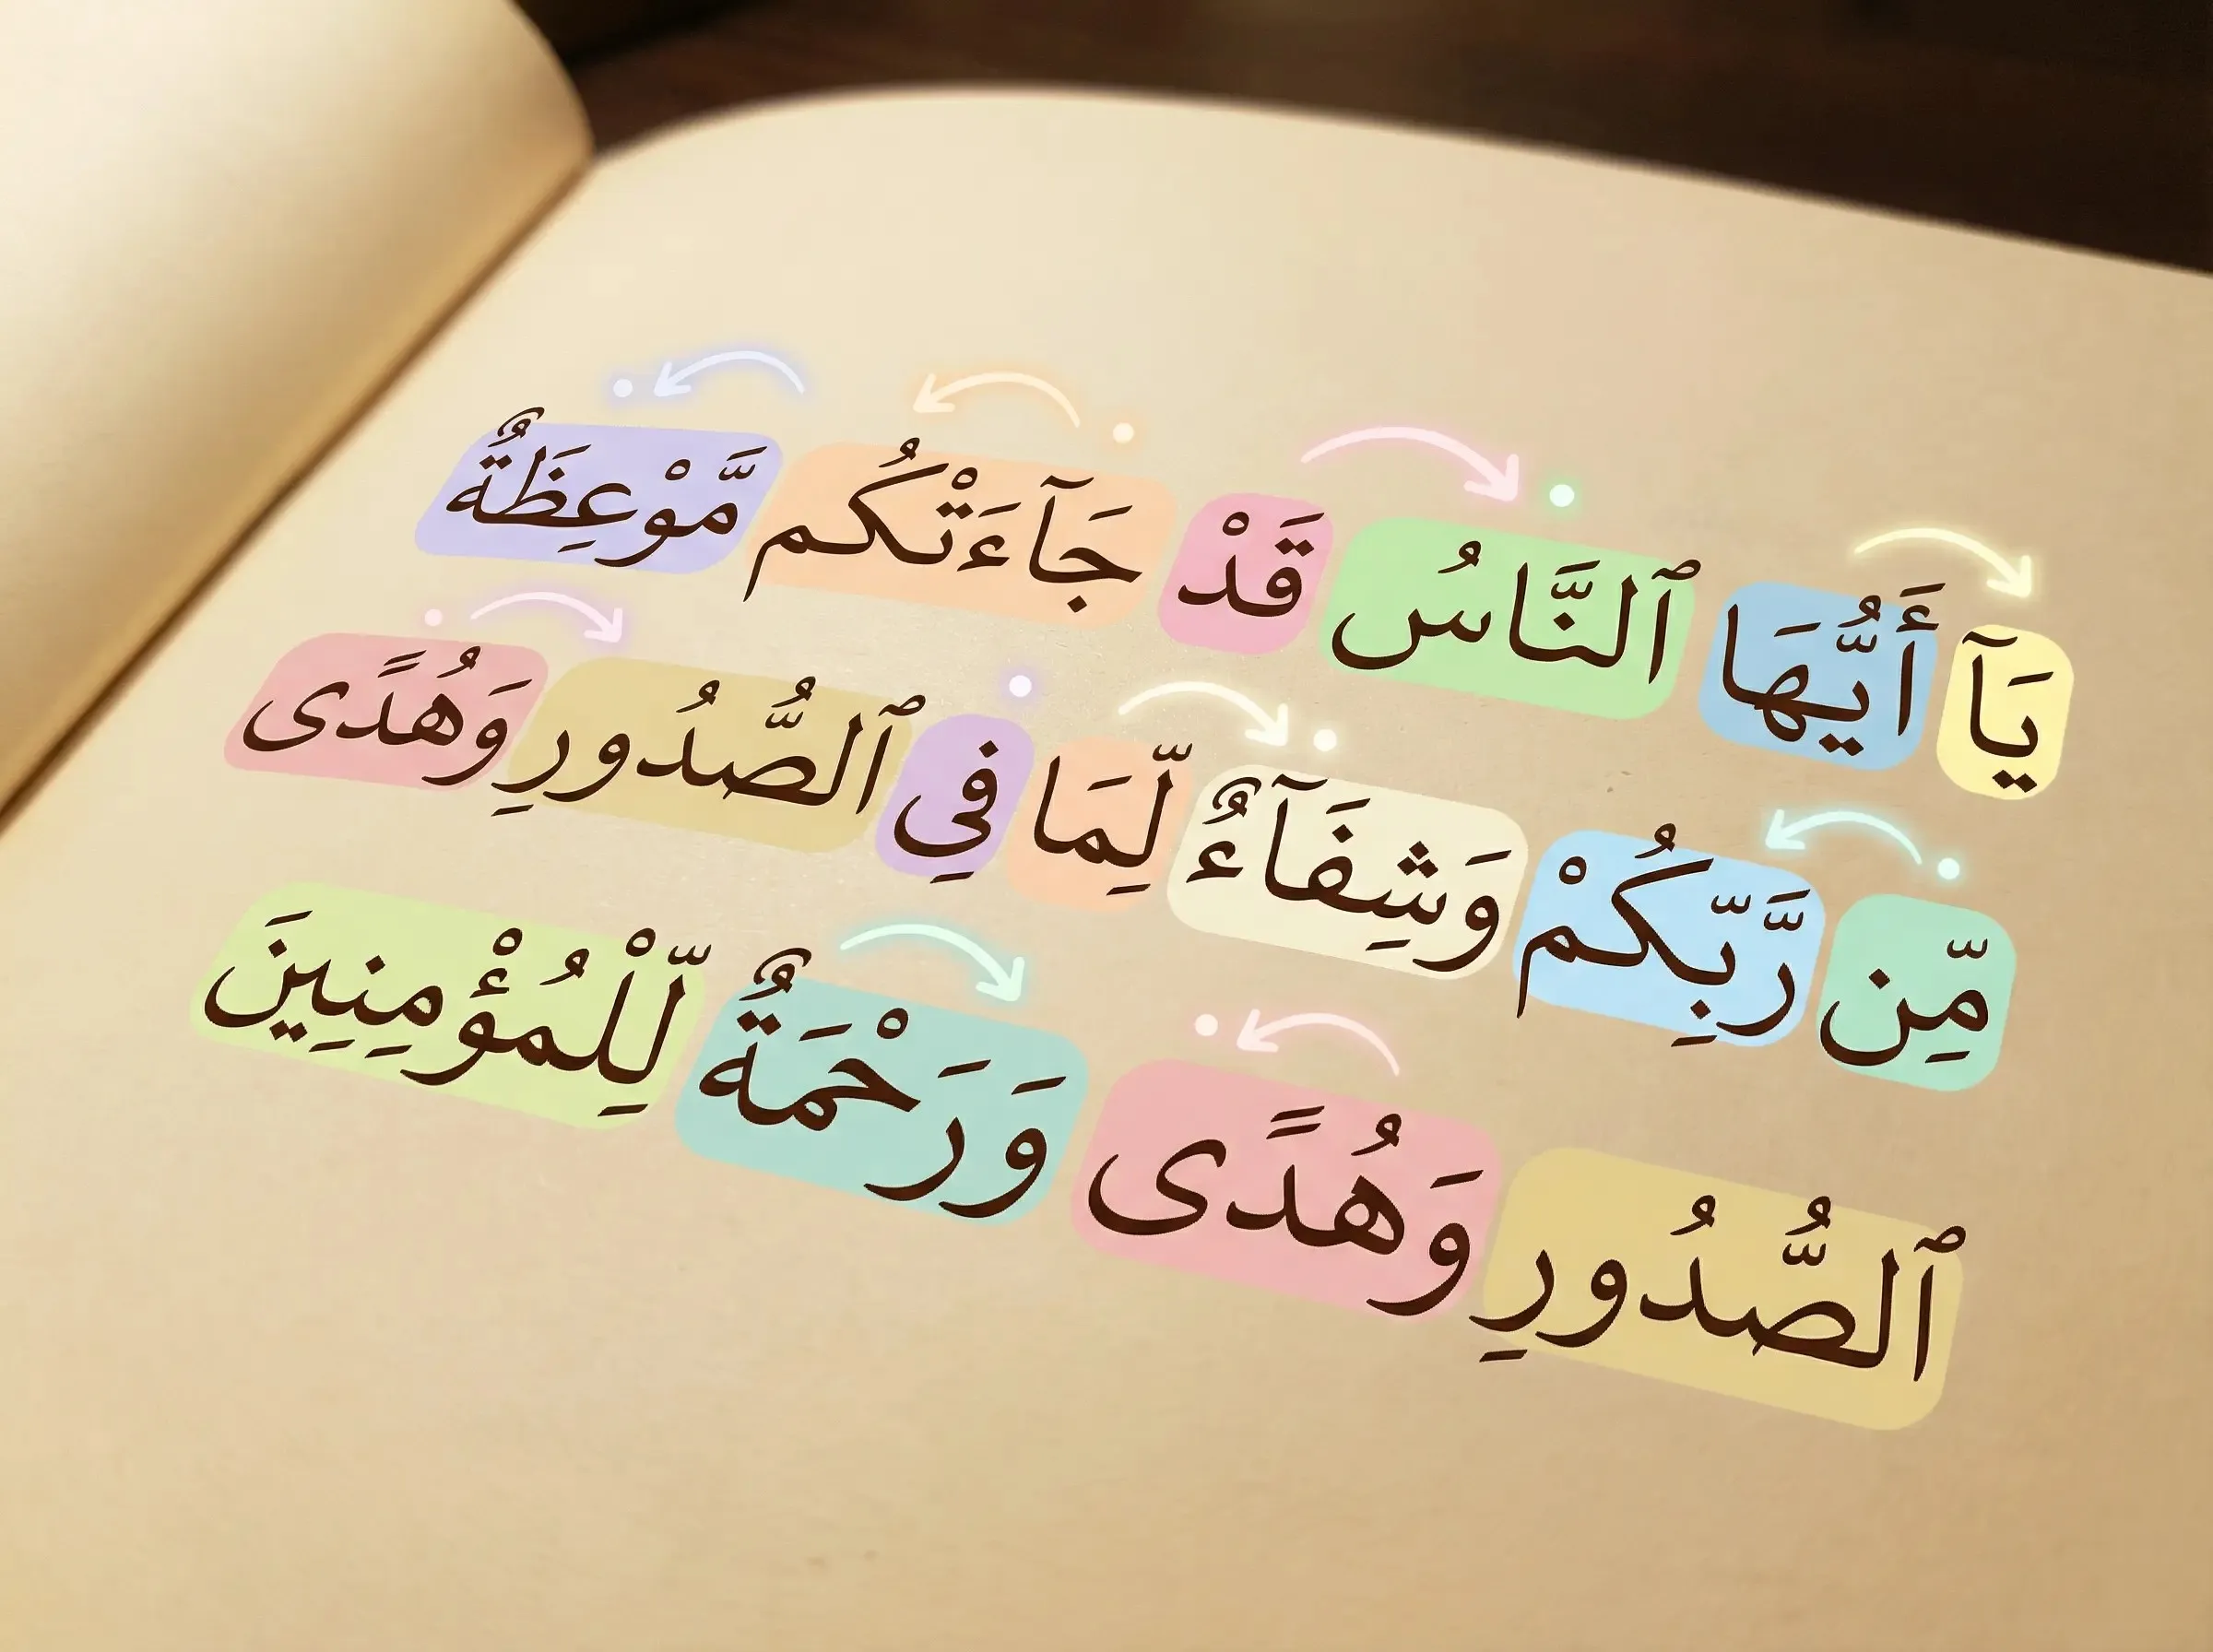 يَآ أَيُّهَا ٱلنَّاسُ قَدْ جَآءَتْكُم مَّوْعِظَةٌ
مِّن رَّبِّكُمْ وَشِفَآءٌ لِّمَا فِي ٱلصُّدُورِ وَهُدًى
ٱلصُّدُورِ وَهُدًى وَرَحْمَةٌ لِّلْمُؤْمِنِينَ